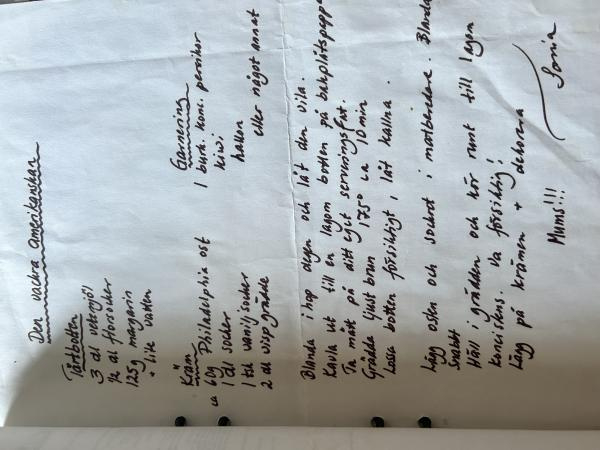 Den vackra amerikanskan
Tårtbotten
3 dl vetemjöl
½ dl florsocker
125 g margarin
+ lite vatten
Kräm
ca 60g Philadelphia ost
1 dl socker
1 tsk vaniljsocker
2 dl vispgrädde
Garnering
1 burk kons. persikor
kiwi
hallon
eller något annat
Blanda ihop degen och låt den vila.
Kavla ut till en lagom botten på bakplåtspapp
Ta mått på ditt eget serveringsfat.
Grädda ljust brun 175° ca 10 min
Lossa botten försiktigt låt kallna.
Lägg osten och sockret i matberedare. Blanda
snabbt
Häll i grädden och kör runt till lagom
konsistens. Va försiktig!
Lägg på krämen + dekorera
Mums!!!
Sonia